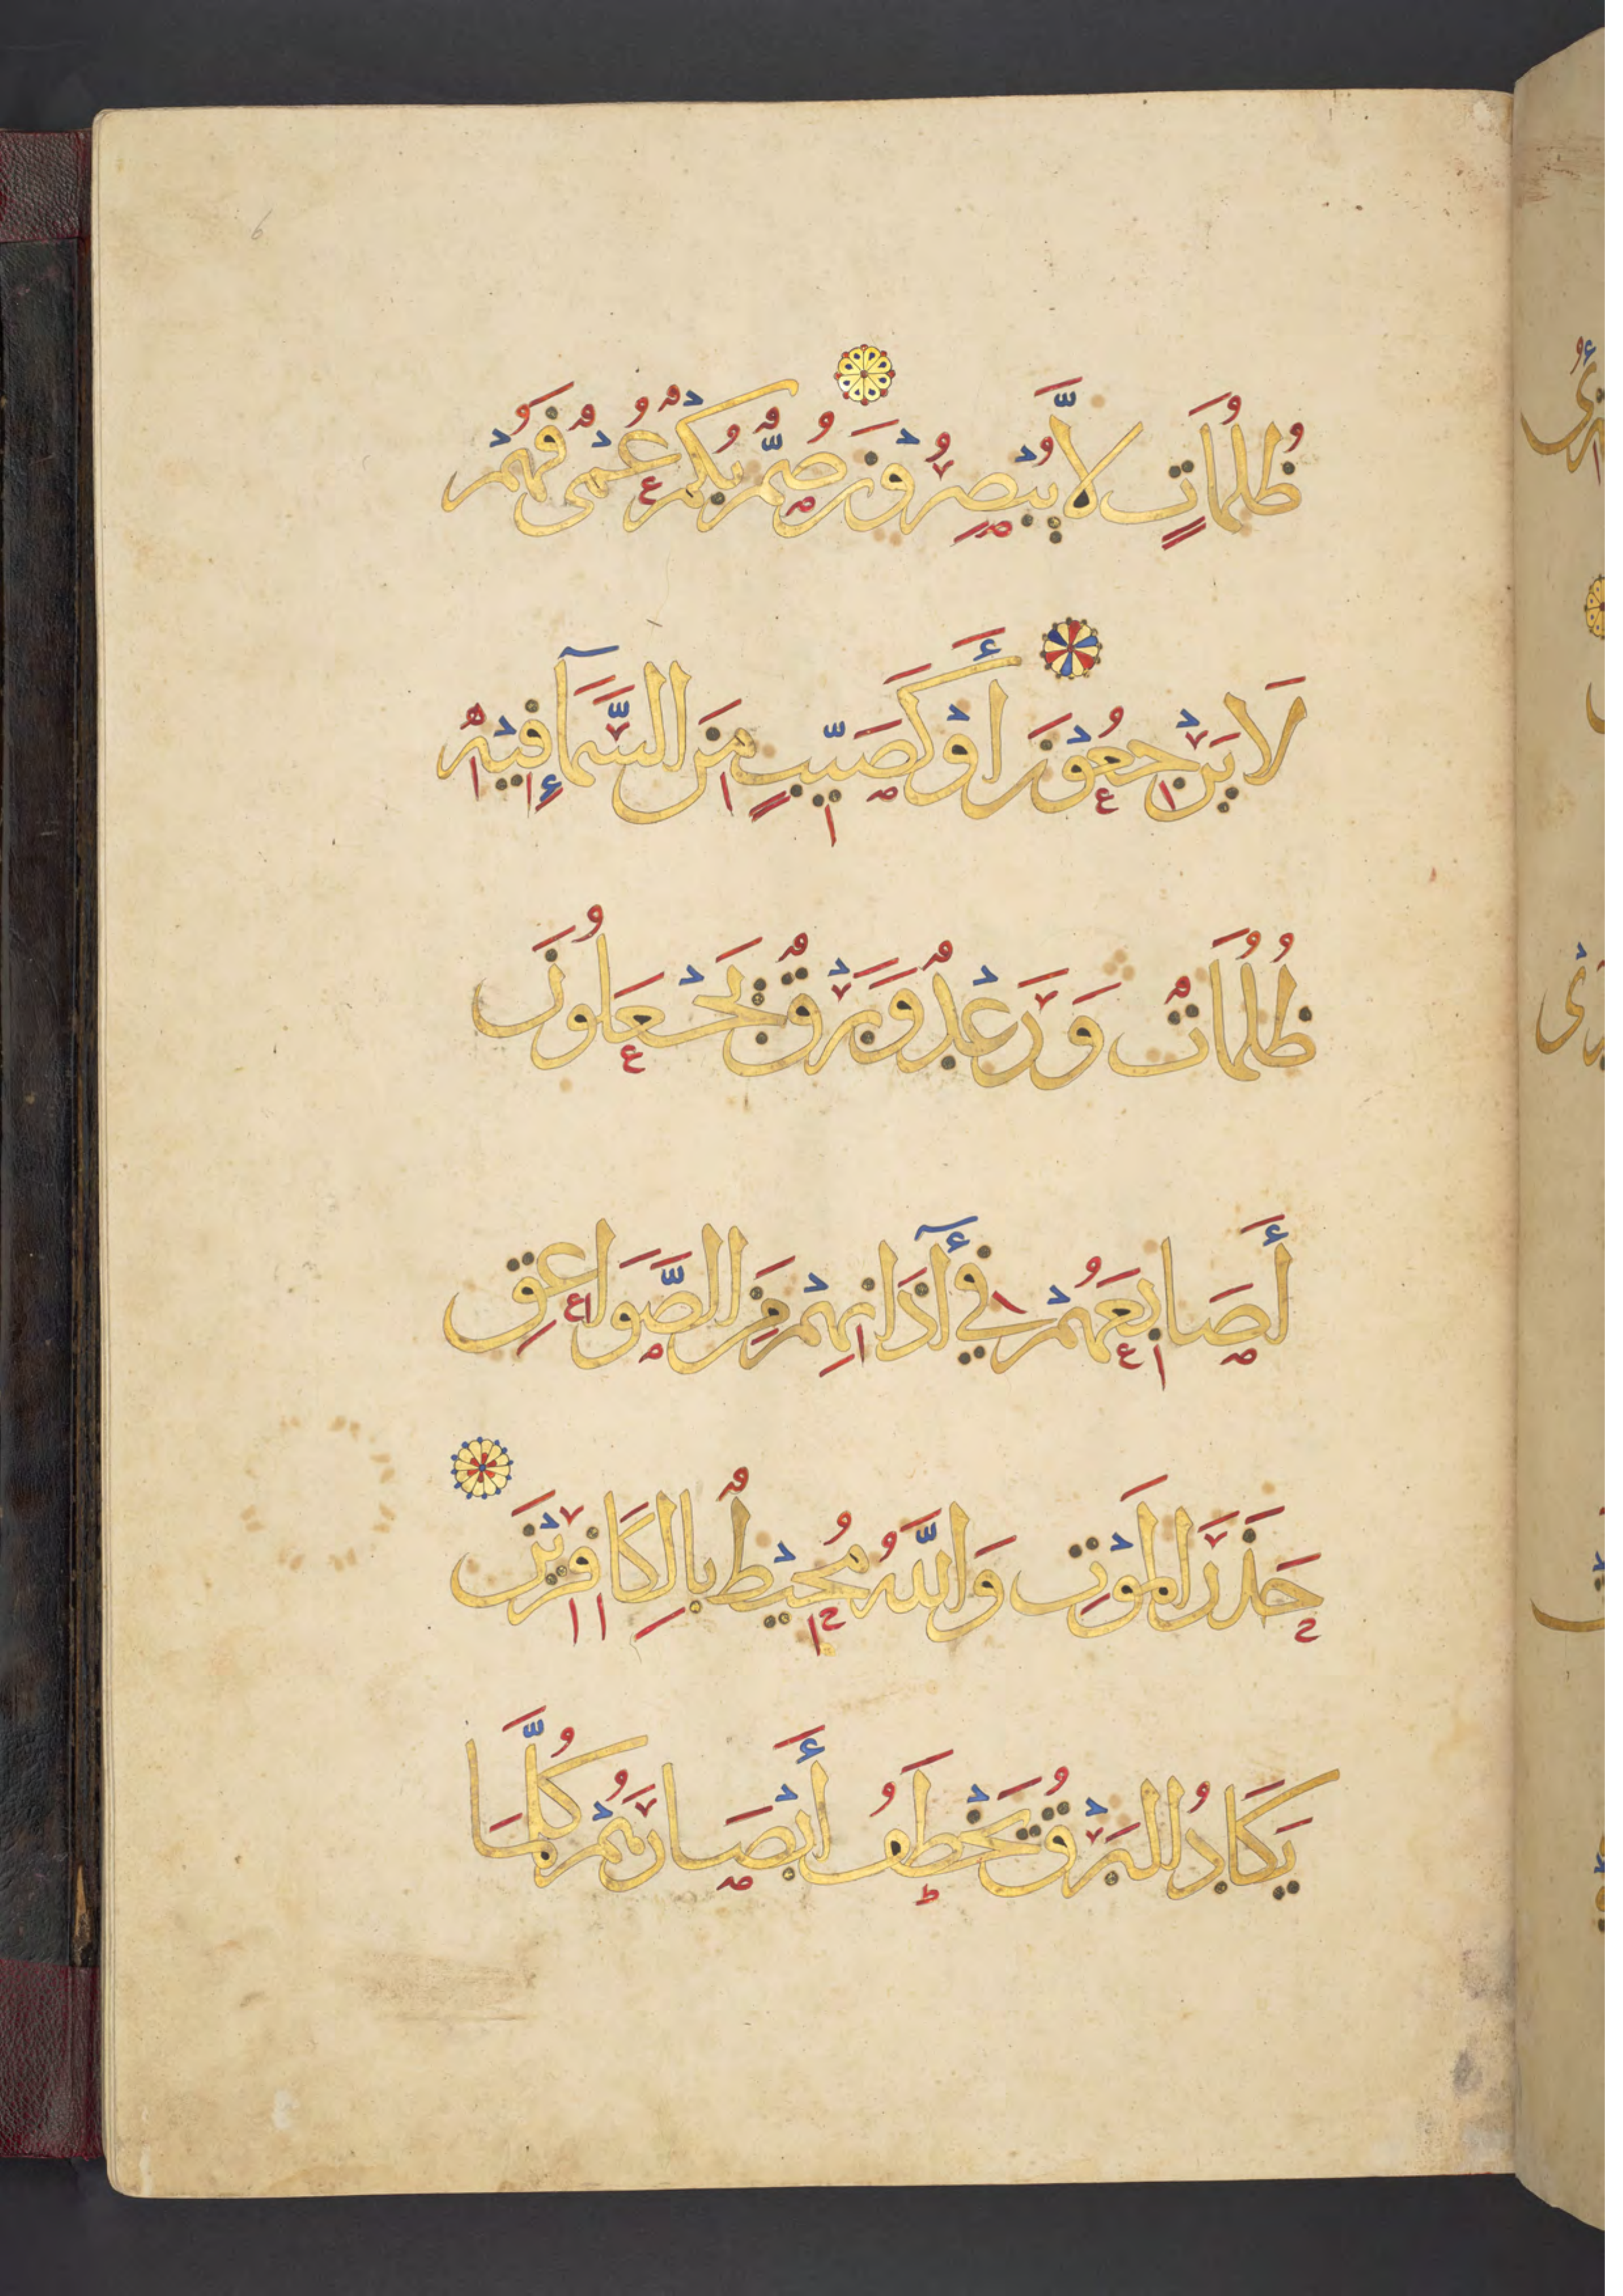 ظُلُمَاتٍ لَّا يُبْصِرُوْنَ صُمٌّ بُكْمٌ عُمْىٌ فَهُمْ
لَا يَرْجِعُوْنَ أَوْ كَصَيِّبٍ مِنَ السَّمَآءِ فِيْهِ
ظُلُمَاتٌ وَرَعْدٌ وَبَرْقٌ يَجْعَلُونَ
أَصَابِعَهُمْ فِي آذَانِهِمْ مِنَ الصَّوَاعِقِ
حَذَرَ الْمَوْتِ وَاللَّهُ مُحِيْطٌ بِالكَافِرِيْنَ
يَكَادُ البَرْقُ يَخْطَفُ أَبْصَارَهُمْ كُلَّمَا
6